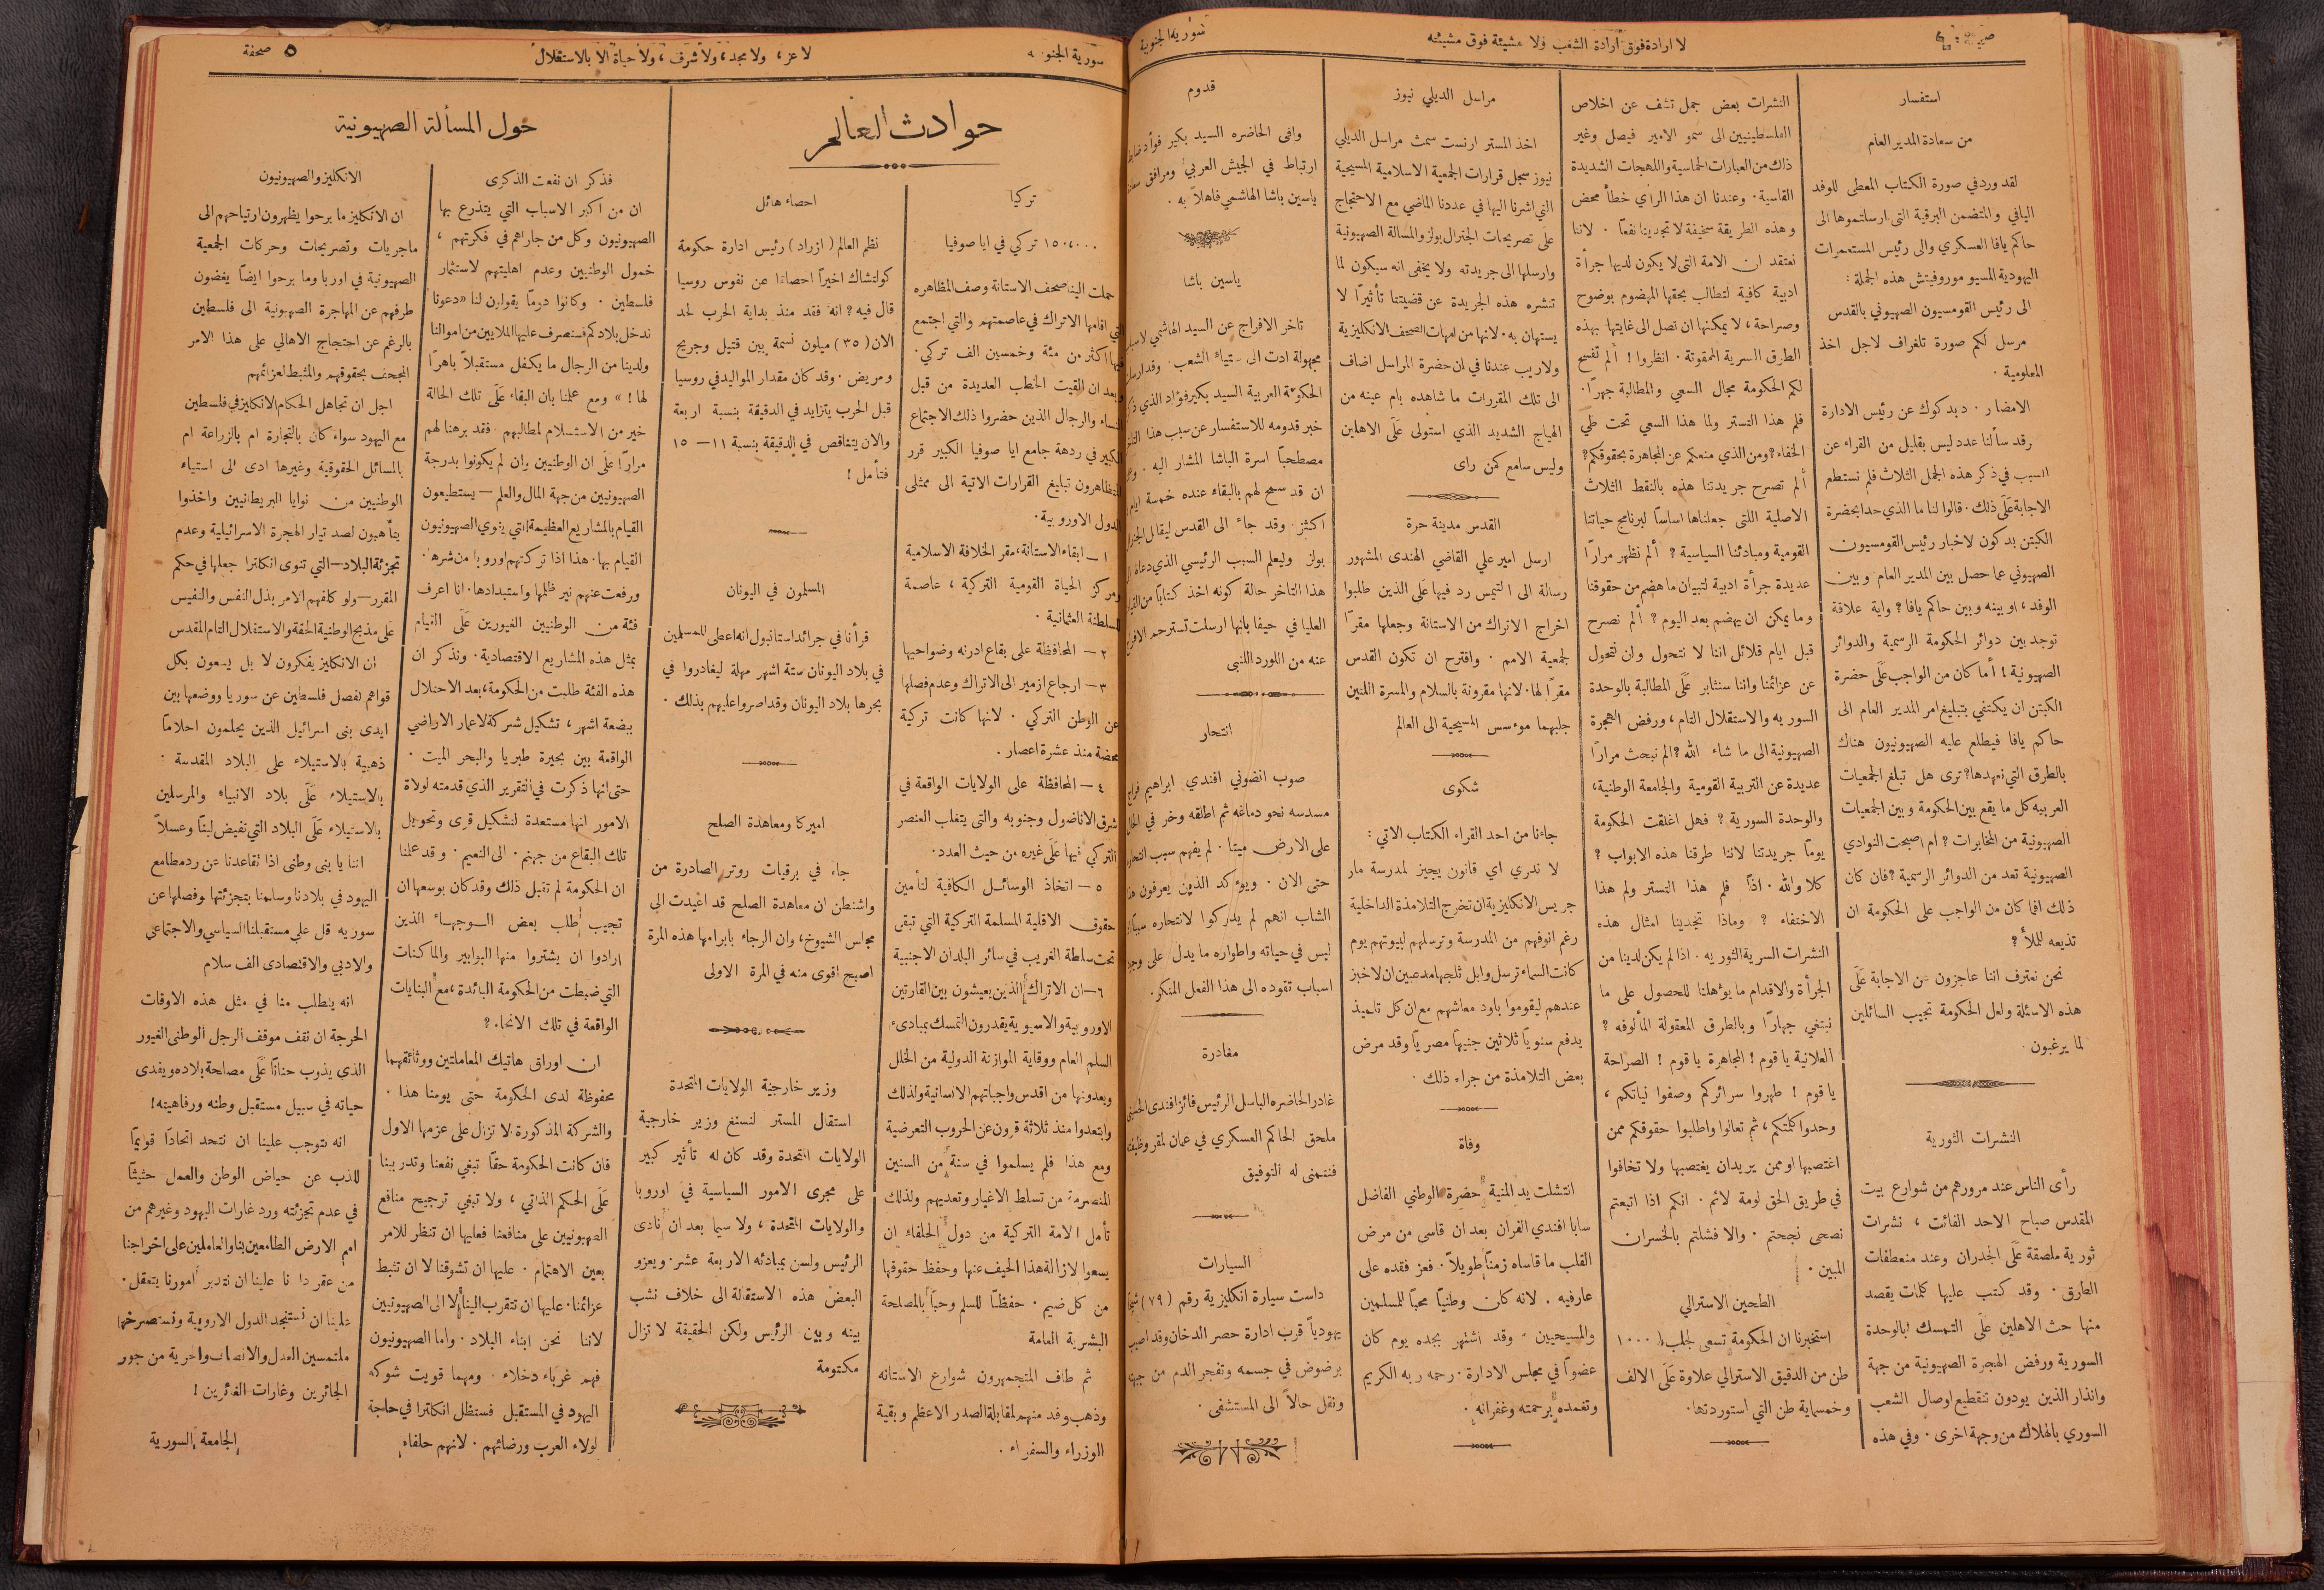 صحيفة ٤
لا ارادة فوق ارادة الشعب ولا مشيئة فوق مشيئته
سورية الجنوبية
استفسار
من سعادة المدير العام
لقد ورد في صورة الكتاب المعطى للوفد
اليافي والمتضمن البرقية التي ارسلتموها الى
حاكم يافا العسكري والى رئيس المستعمرات
اليهودية المسيو موروفيتش هذه الجملة :
الى رئيس القومسيون الصهيوني بالقدس
مرسل لكم صورة تلغراف لاجل اخذ
المعلومية .
الامضا ر . د بدكوك عن رئيس الادارة
وقد سألنا عدد ليس بقليل من القراء عن
السبب في ذكر هذه الجمل الثلاث فلم نستطع
الاجابة عَلَى ذلك . قالوا لنا ما الذي حدا بحضرة
الكبتن بدكون لاخبار رئيس القومسيون
الصهيوني عما حصل بين المدير العام وبين
الوفد ، او بينه وبين حاكم يافا ؟ واية علاقة
توجد بين دوائر الحكومة الرسمية والدوائر
الصهيونية ! أما كان من الواجب عَلَى حضرة
الكبتن ان يكتفي بتبليغ امر المدير العام الى
حاكم يافا فيطلع عليه الصهيونيون هناك
بالطرق التي نعهدها ؟ ترى هل تبلغ الجمعيات
العربيه كل ما يقع بين الحكومة وبين الجمعيات
الصهيونية من المخابرات ؟ ام اصبحت النوادي
الصهيونية تعد من الدوائر الرسمية ؟ فان كان
ذلك افما كان من الواجب على الحكومة ان
تذيعه للملأ ؟
نحن نعترف اننا عاجزون عن الاجابة عَلَى
هذه الاسئلة ولعل الحكومة تجيب السائلين
لما يرغبون .
النشرات الثورية
رأى الناس عند مرورهم من شوارع بيت
المقدس صباح الاحد الفائت ، نشرات
ثورية ملصقة عَلَى الجدران وعند منعطفات
الطرق . وقد كتب عليها كلمات يقصد
منها حث الاهلين عَلَى التمسك بالوحدة
السورية ورفض الهجرة الصهيونية من جهة
وانذار الذين يودون تقطيع اوصال الشعب
السوري بالهلاك من وجهة اخرى . وفي هذه
النشرات بعض جمل تشف عن اخلاص
الفلسطينيين الى سمو الامير فيصل وغير
ذاك من العبارات الحماسية واللهجات الشديدة
القاسية . وعندنا ان هذا الرأي خطأ محض
وهذه الطريقة سخيفة لا تجدينا نفعاً . لاننا
نعتقد ان الامة التى لا يكون لديها جرأة
ادبية كافية لتطالب بحقها المهضوم بوضوح
وصراحة ، لا يمكنها ان تصل الى غايتها بهذه
الطرق السرية الممقوتة . انظروا ! ألم تفسح
لكم الحكومة مجال السعي والمطالبة جهرًا .
فلم هذا التستر ولما هذا السعي تحت طي
الخفاء ؟ ومن الذي منعكم عن المجاهرة بحقوقكم ؟
ألم تصرح جريدتنا هذه بالنقط الثلاث
الاصلية اللتى جعلناها اساساً لبرنامج حياتنا
القومية ومبادئنا السياسية ؟ ألم نظهر مرارًا
عديدة جرأة ادبية لتبيان ما هضم من حقوقنا
وما يمكن ان يهضم بعد اليوم ؟ ألم نصرح
قبل ايام قلائل اننا لا نتحول ولن نتحول
عن عزائمنا واننا سنثابر عَلَى المطالبة بالوحدة
السوريه والاستقلال التام ، ورفض الهجرة
الصهيونية الى ما شاء الله ؟ الم نبحث مرارًا
عديدة عن التربية القومية والجامعة الوطنية ،
والوحدة السورية ؟ فهل اغلقت الحكومة
يومًا جريدتنا لاننا طرقنا هذه الابواب ؟
كلا والله . اذاً فلم هذا التستر ولم هذا
الاختفاء ؟ وماذا تجدينا امثال هذه
النشرات السرية الثوريه . اذا لم يكن لدينا من
الجرأة والاقدام ما يؤهلنا للحصول على ما
نبتغي جهارًا وبالطرق المعقولة المألوفه ؟
العلانية يا قوم ! المجاهرة يا قوم ! الصراحة
يا قوم ! طهروا سرائركم وصفوا نياتكم ،
وحدوا كلمتكم ، ثم تعالوا واطلبوا حقوقكم ممن
اغتصبها او ممن يريدان يغتصبها ولا تخافوا
في طريق الحق لومة لائم . انكم اذا اتبعتم
نصحى نجحتم . والا فشلتم بالخسران
المبين .
الطحين الاسترالي
استخبرنا ان الحكومة تسعى لجلب ١٠٠٠
طن من الدقيق الاسترالي علاوة عَلَى الالف
وخمسماية طن التي استوردتها .
مراسل الديلي نيوز
اخذ المستر ارنست سمث مراسل الديلي
نيوز سجل قرارات الجمعية الاسلامية المسيحية
التي اشرنا اليها في عددنا الماضي مع الاحتجاج
عَلَى تصريحات الجنرال بولز والمسالة الصهيونية
وارسلها الى جريدته ولا يخفى انه سيكون لما
تنشره هذه الجريدة عن قضيتنا تأثيرًا لا
يستهان به . لانها من امهات الصحف الانكليزية
ولاريب عندنا في ان حضرة المراسل اضاف
الى تلك المقررات ما شاهده بام عينه من
الهياج الشديد الذي استولى عَلَى الاهلين
وليس سامع كمن راى
القدس مدينة حرة
ارسل امير علي القاضي الهندى المشهور
رسالة الى التيمس رد فيها عَلَى الذين طلبوا
اخراج الاتراك من الاستانة وجعلها مقرًا
لجمعية الامم . واقترح ان تكون القدس
مقرًا لها . لانها مقرونة بالسلام والمسرة اللتين
جلبهما موءسس المسيحية الى العالم
شكوى
جاءنا من احد القراء الكتاب الاتي :
لا ندري اي قانون يجيز لمدرسة مار
جريس الانكليزية ان تخرج التلامذة الداخلية
رغم انوفهم من المدرسة وترسلهم لبيوتهم يوم
كانت السماء ترسل وابل ثلجها مدعين ان لا خبز
عندهم ليقوموا باود معاشهم مع ان كل تلميذ
يدفع سنوياً ثلاثين جنيهاً مصرياً وقد مرض
بعض التلامذة من جراء ذلك .
وفاة
انتشلت يد المنية حضرة الوطني الفاضل
سابا افندي الفران بعد ان قاسى من مرض
القلب ما قاساه زمناً طويلاً . فعز فقده على
عارفيه . لانه كان وطنياً محباً للمسلمين
والمسيحيين . وقد اشتهر بجده يوم كان
عضواً في مجلس الادارة . رحمه ربه الكريم
وتغمده برحمته وغفرانه .
قدوم
وافى الحاضره السيد بكير فوأد ضابط
ارتباط في الجيش العربي ومرافق
ياسين باشا الهاشمي فاهلاً به .
ياسين باشا
تاخر الافراج عن السيد الهاشمي
مجهولة ادت الى ستياء الشعب .
الحكومة العربية السيد بكير فؤاد الذي
خبر قدومه للاستفسار عن سبب هذا
مصطحباً اسرة الباشا المشار اليه .
ان قد سمح لهم بالبقاء عنده خمسة ايام
اكثر . وقد جاء الى القدس ليقابل
بولز وليعلم السبب الرئيسي الذي
هذا التاخر حالة كونه اخذ كتابًا من
العليا في حيفا بانها ارسلت تسترحم
عنه من اللورد اللنبى
انتحار
صوب انضوني افندي ابراهيم
مسدسه نحو دماغه ثم اطلقه وخر في
على الارض ميتا . لم يفهم سبب
حتى الان . ويوءكد الذين يعرفون
الشاب انهم لم يدركوا لانتحاره
ليس في حياته واطواره ما يدل على
اسباب تقوده الى هذا الفعل المنكر .
مغادرة
غادر الحاضره الباسل الرئيس فائز افندى
ملحق الحاكم العسكري في عمان لمقر
فنتمنى له التوفيق
السيارات
داست سيارة انكليزية رقم (٧٩)
يهودياً قرب ادارة حصر الدخان وقد
برضوض في جسمه وتفجر الدم من
ونقل حالاً الى المستشفى .
سورية الجنو
لا عز ، ولا مجد ، ولا شرف ، ولا حياة الا بالاستقلال
صحفة ٥
حوادث العالم
تركيا
١٥٠٬٠٠٠ تركي في ايا صوفيا
حملت الينا صحف الاستانة وصف المظاهره
التي اقامها الاتراك في عاصمتهم والتي اجتمع
فيها اكثر من مئة وخمسين الف تركي .
وبعد ان القيت الخطب العديدة من قبل
النساء والرجال الذين حضروا ذلك الاجتماع
الكبير في ردهة جامع ايا صوفيا الكبير قرر
المتظاهرون تبليغ القرارات الاتية الى ممثلى
الدول الاوروبية .
١ – ابقاء الاستانة ، مقر الخلافة الاسلامية
ومركز الحياة القومية التركية ، عاصمة
للسلطنة العثمانية .
٢ – المحافظة على بقاع ادرنه وضواحيها
٣ – ارجاع ازمير الى الاتراك وعدم فصلها
عن الوطن التركي . لانها كانت تركية
محضة منذ عشرة اعصار .
٤ – المحافظة على الولايات الواقعة في
شرق الاناضول وجنوبه والتى يتغلب العنصر
التركي فيها عَلَى غيره من حيث العدد .
٥ – اتخاذ الوسائل الكافية لتأمين
حقوق الاقلية المسلمة التركية التي تبقى
تحت سلطة الغريب في سائر البلدان الاجنبية
٦ – ان الاتراك الذين يعيشون بين القارتين
الاوروبية والاسيوية يقدرون التمسك بمبادىء
السلم العام ووقاية الموازنة الدولية من الخلل
ويعدونها من اقدس واجباتهم الانسانية ولذلك
وابتعدوا منذ ثلاثة قرون عن الحروب التعرضية
ومع هذا فلم يسلموا في سنة من السنين
المنصرمة من تسلط الاغيار وتعديهم ولذلك
تأمل الامة التركية من دول الحلفاء ان
يسعوا لازالة هذا الحيف عنها وحفظ حقوقها
من كل ضيم . حفظاً للسلم وحباً بالمصلحة
البشرية العامة
ثم طاف المتجمهرون شوارع الاستانه
وذهب وفد منهم لمقابلة الصدر الاعظم وبقية
الوزراء والسفراء .
احصاء هائل
نظم العالم ( ازراد ) رئيس ادارة حكومة
كولتشاك اخيراً احصاءً عن نفوس روسيا
قال فيه ؟ انه فقد منذ بداية الحرب لحد
الان ( ٣٥ ) ميلون نسمة بين قتيل وجريح
ومريض . وقد كان مقدار المواليد في روسيا
قبل الحرب يتزايد في الدقيقة بنسبة اربعة
والان يتناقص في الدقيقة بنسبة ١١ – ١٥
فتأمل !
المسلمون في اليونان
قرأنا في جرائد استانبول انه اعطى للمسلمين
في بلاد اليونان ستة اشهر مهلة ليغادروا في
بحرها بلاد اليونان وقد اصروا عليهم بذلك .
اميركا ومعاهدة الصلح
جاء في برقيات روتر الصادرة من
واشنطن ان معاهدة الصلح قد اعيدت الى
مجلس الشيوخ ، وان الرجاء بابرامها هذه المرة
اصبح اقوى منه في المرة الاولى
وزير خارجية الولايات المتحدة
استقال المستر لنسنغ وزير خارجية
الولايات المتحدة وقد كان له تأثير كبير
على مجرى الامور السياسية في اوروبا
والولايات المتحدة ، ولا سيما بعد ان نادى
الرئيس ولسن بمبادئه الاربعة عشر . ويعزو
البعض هذه الاستقالة الى خلاف نشب
بينه وبين الرئيس ولكن الحقيقة لا تزال
مكتومة
حول المسألة الصهيونية
فذكر ان نفعت الذكرى
ان من اكبر الاسباب التي يتذرع بها
الصهيونيون وكل من جاراهم في فكرتهم ،
خمول الوطنيين وعدم اهليتهم لاستثمار
فلسطين . وكانوا دومًا يقولون لنا « دعونا
ندخل بلادكم فسنصرف عليها الملايين من اموالنا
ولدينا من الرجال ما يكفل مستقبلاً باهرًا
لها ! » ومع علمنا بان البقاء عَلَى تلك الحالة
خير من الاستسلام لمطالبهم . فقد برهنا لهم
مرارًا عَلَى ان الوطنيين وان لم يكونوا بدرجة
الصهيونيين من جهة المال والعلم – يستطيعون
القيام بالمشاريع العظيمة التي ينوي الصهيونيون
القيام بها . هذا اذا تركتهم اوروبا من شرها .
ورفعت عنهم نير ظلمها واستبدادها . انا اعرف
فئة من الوطنيين الغيورين عَلَى القيام
بمثل هذه المشاريع الاقتصادية . ونذكر ان
هذه الفئة طلبت من الحكومة ، بعد الاحتلال
ببضعة اشهر ، تشكيل شركة لاعمار الاراضي
الواقعة بين بحيرة طبريا والبحر الميت .
حتى انها ذكرت في التقرير الذي قدمته لولاة
الامور انها مستعدة لتشكيل قرى وتحويل
تلك البقاع من جهنم . الى النعيم . وقد علمنا
ان الحكومة لم تقبل ذلك وقد كان بوسعها ان
تجيب طلب بعض الوجهاء الذين
ارادوا ان يشتروا منها البوابير والماكنات
التي ضبطت من الحكومة البائدة ، مع البنايات
الواقعة في تلك الانحاء ؟
ان اوراق هاتيك المعاملتين ووثائقهما
محفوظة لدى الحكومة حتى يومنا هذا .
والشركة المذكورة لا تزال على عزمها الاول
فان كانت الحكومة حقاً تبغي نفعنا وتدريبنا
عَلَى الحكم الذاتي ، ولا تبغي ترجيح منافع
الصهيونيين على منافعنا فعليها ان تنظر للامر
بعين الاهتمام . عليها ان تشوقنا لا ان تثبط
عزائمنا . عليها ان تتقرب الينا لا الى الصهيونيين
لاننا نحن ابناء البلاد . واما الصهيونيون
فهم غرباء دخلاء . ومهما قويت شوكة
اليهود في المستقبل فستظل انكلترا في حاجة
لولاء العرب ورضائهم . لانهم حلفاء
الانكليز والصهيونيون
ان الانكليز ما برحوا يظهرون ارتياحهم الى
ماجريات وتصريحات وحركات الجمعية
الصهيونية في اوربا وما برحوا ايضاً يغضون
طرفهم عن المهاجرة الصهيونية الى فلسطين
بالرغم عن احتجاج الاهالي على هذا الامر
المجحف بحقوقهم والمثبط لعزائمهم
اجل ان تجاهل الحكام الانكليز في فلسطين
مع اليهود سواء كان بالتجارة ام بالزراعة ام
بالمسائل الحقوقية وغيرها ادى الى استياء
الوطنيين من نوايا البريطانيين واخذوا
يتأهبون لصد تيار الهجرة الاسرائيلية وعدم
تجزئة البلاد – التي تنوى انكلترا جعلها في حكم
المقرر – ولو كلفهم الامر بذل النفس والنفيس
عَلَى مذبح الوطنية الحقة والاستقلال التام المقدس
ان الانكليز يفكرون لا بل يسعون بكل
قواهم لفصل فلسطين عن سوريا ووضعها بين
ايدى بنى اسرائيل الذين يحلمون احلامًا
ذهبية بالاستيلاء على البلاد المقدسة .
بالاستيلاء عَلَى بلاد الانبياء والمرسلين
بالاستيلاء عَلَى البلاد التي تفيض لبناً وعسلاً
اننا يا بنى وطنى اذا تقاعدنا عن رد مطامع
اليهود في بلادنا وسلمنا بتجزئتها وفصلها عن
سوريه قل على مستقبلنا السياسي والاجتماعي
والادبي والاقتصادى الف سلام
انه يتطلب منا في مثل هذه الاوقات
الحرجة ان نقف موقف الرجل الوطنى الغيور
الذي يذوب حنانًا عَلَى مصلحة بلاده ويفدى
حياته في سبيل مستقبل وطنه ورفاهيته !
انه يتوجب علينا ان نتحد اتحادًا قويمًا
للذب عن حياض الوطن والعمل حثيثًا
في عدم تجزئته ورد غارات اليهود وغيرهم من
امم الارض الطامعين بنا والعاملين على اخراجنا
من عقر دا نا علينا ان نتدبر امورنا بتعقل .
علينا ان نستنجد الدول الاروبية ونستصرخها
ملتمسين العدل والانصاف والحرية من جور
الجائرين وغارات الغائرين !
الجامعة السورية